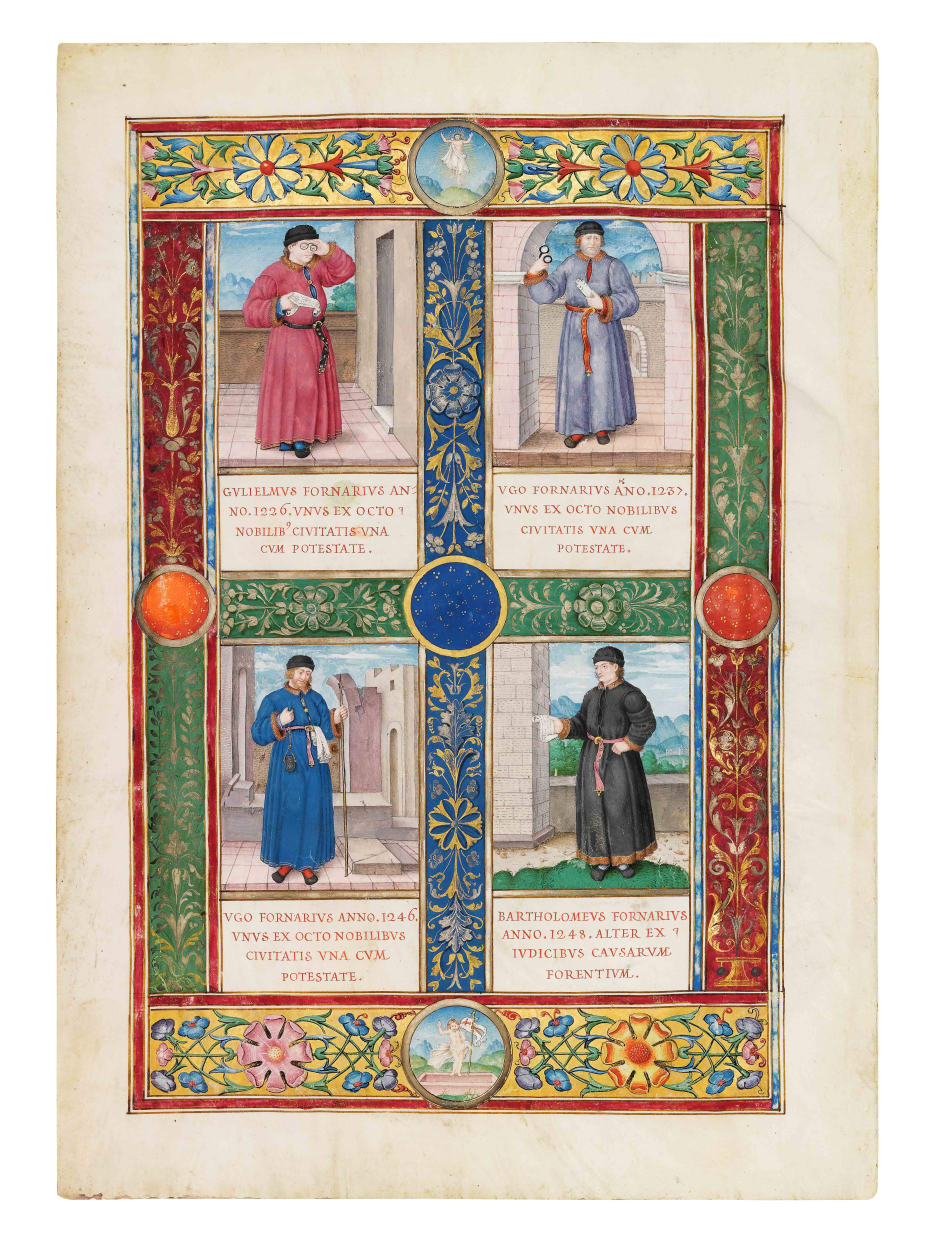 GVLIELMVS FORNARIVS AN-
NO.1226.VNVS EX OCTO ꝰ
NOBILIBꝰ CIVITATIS VNA
CVM POTESTATE.
VGO FORNARIVS ÃNO.1237.
VNVS EX OCTO NOBILIBVS
CIVITATIS VNA CVM
POTESTATE.
VGO FORNARIVS ANNO.1246.
VNVS EX OCTO NOBILIBVS
CIVITATIS VNA CVM
POTESTATE.
BARTHOLOMEVS FORNARIVS
ANNO.1248.ALTER EX
IVDICIBVS CAVSARVM
FORENTIVM.